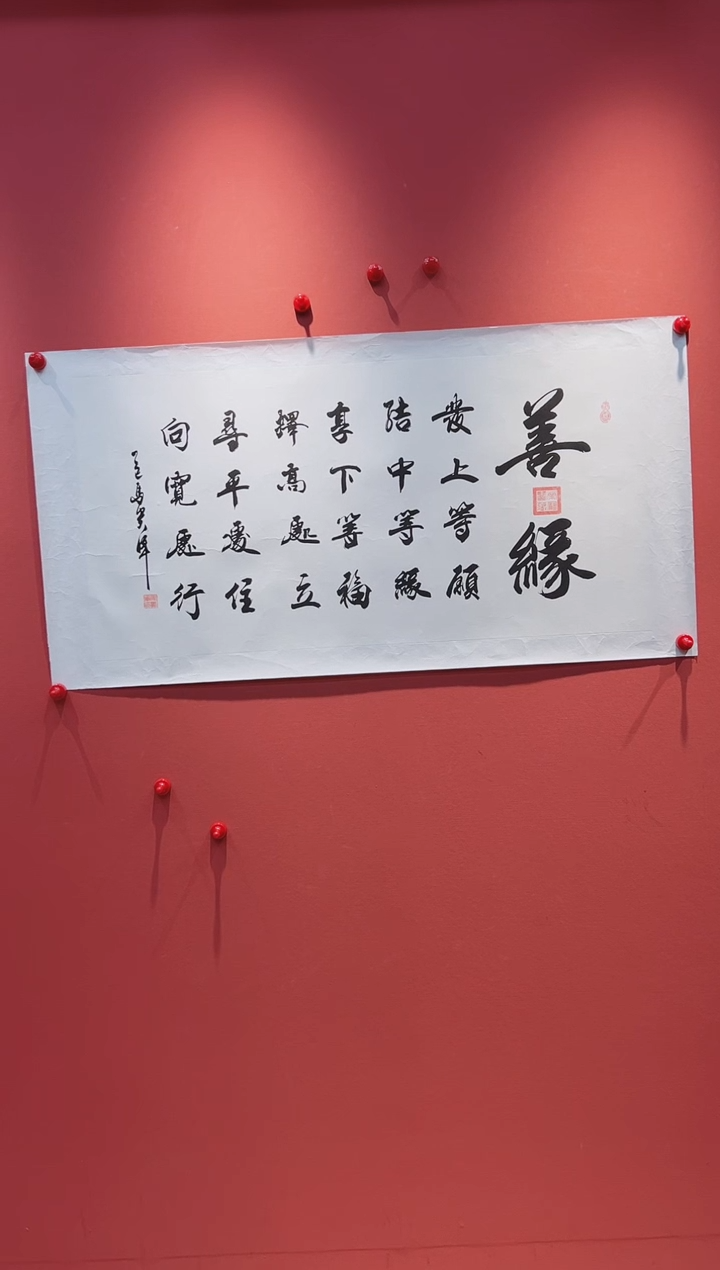 善緣
發上等願
結中等緣
享下等福
擇高處立
尋平處住
向寬處行